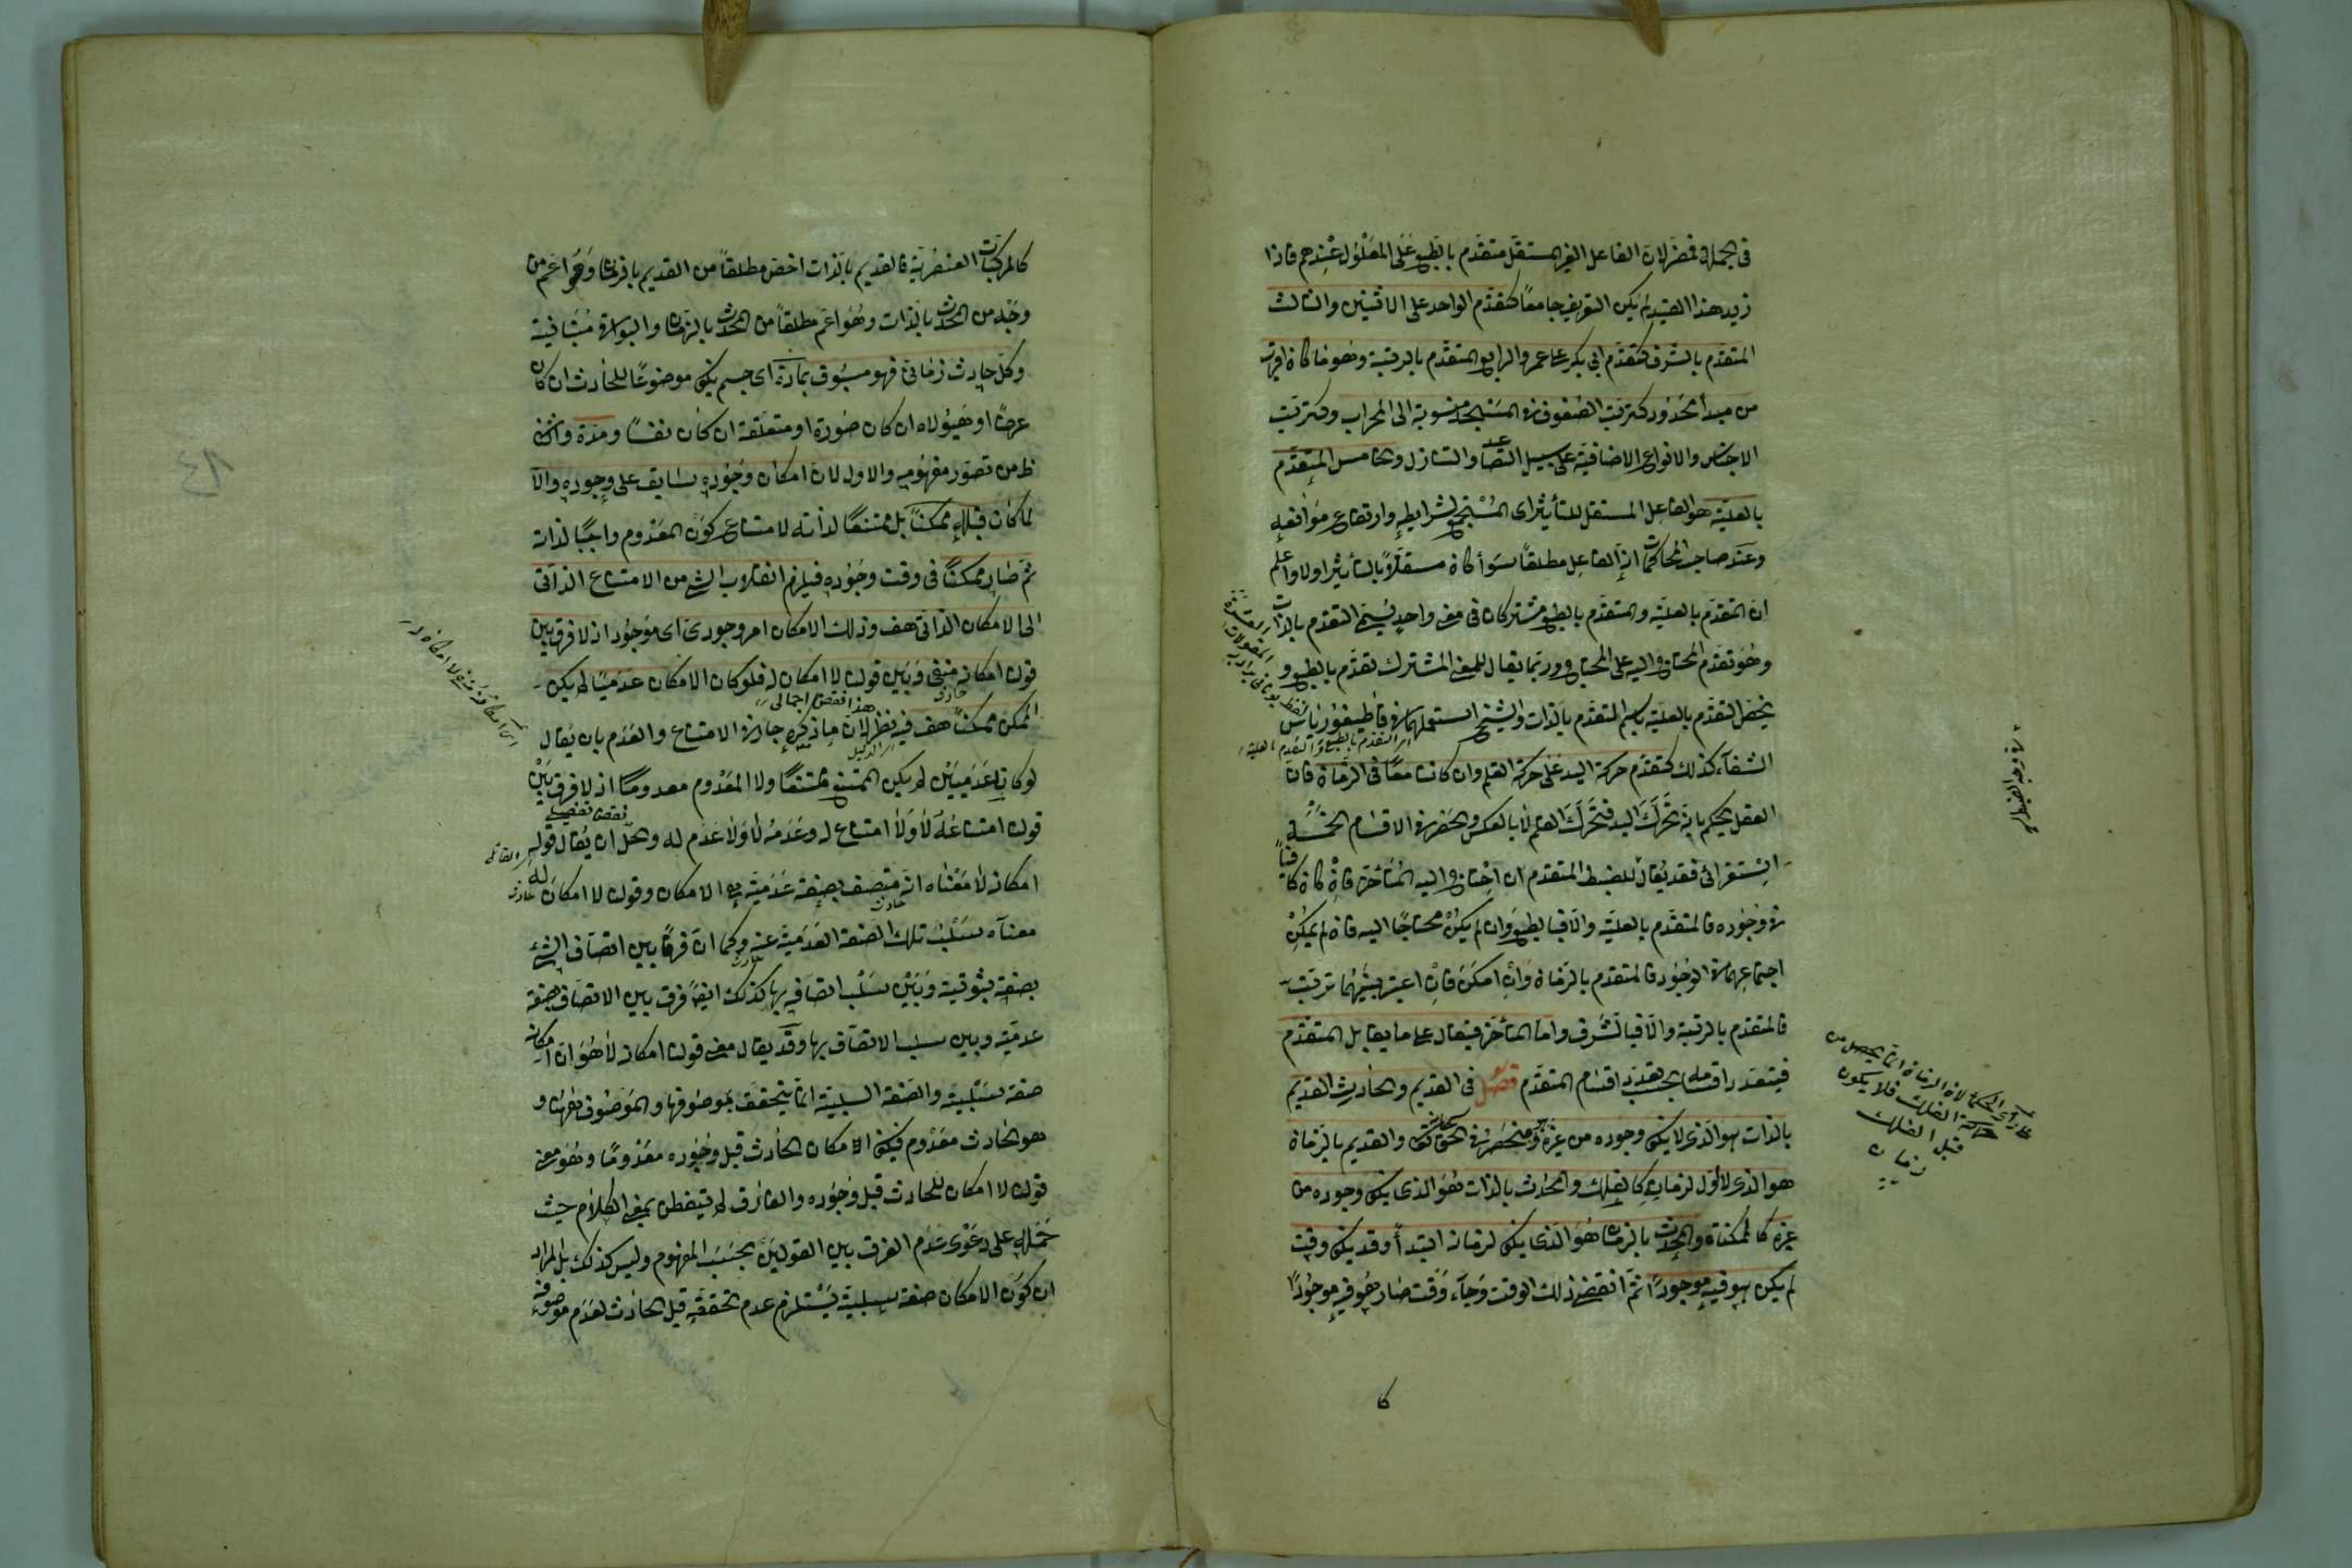 في الجملة فمضر لان الفاعل الغير المستقل متقدم بالطبع على المعلول عندهم فاذا
زيد هذا القيد لم يكن التعريف جامعا كتقدم الواحد على الاثنين والثالث
المتقدم بالشرف كتقدم ابي بكر على عمر والرابع المتقدم بالرتبة وهو ما كان اقرب
من مبدأ محدود كترتب الصفوف في المسجد منسوبة الى المحراب وكترتب
الاجناس والانواع الاضافية على سبيل التصاعد والتنازل والخامس المتقدم
بالعلية هو الفاعل المستقل للتأثير اى المستجمع لشرايطه وارتفاع موانعه
وعند صاحب المحاكمات ان الفاعل مطلقا سوأ كان مستقلا بالتأثير اولا واعلم
ان التقدم بالعلية والمتقدم بالطبع مشتركان في معنى واحد يسمى التقدم بالذات
وهو تقدم المحتاج اليه على المحتاج وربما يقال للمعنى المشترك تقدم بالطبع و
يخص التقدم بالعلية باسم المتقدم بالذات والشيخ استعملهما في قاطيغورياس
الشفآء كذلك كتقدم حركة اليد على حركة القلم وان كانتا معا في الزمان فان
العقل يحكم بانه تحرك اليد فتحرك القلم لا بالعكس والحصر في الاقسام الخمسة
استقرائى فقد يقال للضبط المتقدم ان احتاج اليه المتأخر فان كان كافيا
في وجوده فالمتقدم بالعلية والا فبالطبع وان لم يكن محتاجا اليه فان لم يمكن
اجتماعهما في الوجود فالمتقدم بالزمان وان امكن فان اعتبر بينهما ترتب
فالمتقدم بالرتبة والا فبالشرف واما المتأخر فيقال على ما يقابل المتقدم
فيتعدد اقسامه بحسب تعدد اقسام المتقدم فصل في القديم والحادث القديم
بالذات هو الذى لا يكون وجوده من غيره وهو منحصر في الحق تعالى والقديم بالزمان
هو الذى لا اول لزمانه كالفلك والمحدث بالذات هو الذى يكون وجوده من
غيره كالممكنات والمحدث بالزمان هو الذى يكون لزمانه ابتدأ وقد يكون وقت
لم يكن هو فيه موجودا ثم انقضى ذلك الوقت وجآء وقت صار هو فيه موجودا
كا
لفظ يونانى يراد به المقولات العشرة
اى التقدم بالطبع والتقدم بالعلية
في وجه الضبط
على رأى الحكمآء لان الزمان انما يحصل من
حركة الفلك فلا يكون
قبل الفلك
زمان
كالمركبات العنصرية فالقديم بالذات اخص مطلقا من القديم بالزمان وهو اعم من
وجه من المحدث بالذات وهو اعم مطلقا من المحدث بالزمان والبواقى متباينة
وكل حادث زماني فهو مسبوق بمادة اى جسم يكون موضوعا للحادث ان كان
عرضا او هيولاه ان كان صورة او متعلقه ان كان نفسا ومدة والثانى
ظ من تصور مفهومه والاول لان امكان وجوده سابق على وجوده والا
لما كان قبله ممكنا بل ممتنعا لذاته لامتناع كون المعدوم واجبا لذاته
ثم صار ممكنا في وقت وجوده فيلزم انقلاب الشئ من الامتناع الذاتى
الى الامكان الذاتى هف وذلك الامكان امر وجودى اى موجود اذ لا فرق بين
قولنا امكانه منفى وبين قولنا لا امكان له فلو كان الامكان عدميا لم يكن
الممكن ممكنا هف فيه نظر لان ما ذكره جار في الامتناع والعدم بان يقال
لو كانا عدميين لم يكن الممتنع ممتنعا ولا المعدوم معدوما اذ لا فرق بين
قولنا امتناعه لا ولا امتناع له وعدمه لا ولا عدم له والحل ان يقال قوله
امكانه لا معناه انه متصف بصفة عدمية هي الامكان وقولنا لا امكان له
معنآه سلب تلك الصفة العدمية عنه وكما ان فرقا بين اتصاف الشئ
بصفة ثبوتية وبين سلب اتصافه بها كذلك ايضا فرق بين الاتصاف بصفة
عدمية وبين سلب الاتصاف بها وقد يقال معنى قولنا امكانه لا هو ان امكانه
صفة سلبية والصفة السلبية انما يتحقق بموصوفها والموصوف ههنا و
هو الحادث معدوم فيكون الامكان الحادث قبل وجوده معدوما وهو معنى
قولنا لا امكان للحادث قبل وجوده والفارق لم يتفطن بمعنى الكلام حيث
حمله على دعوى عدم الفرق بين القولين بحسب المفهوم وليس كذلك بل المراد
ان كون الامكان صفة سلبية يستلزم عدم تحققه قبل الحادث لعدم موصوفه
حادث
هذا نقض اجمالى
اى الدليل
نقض تفصيلى
حادث
حادث